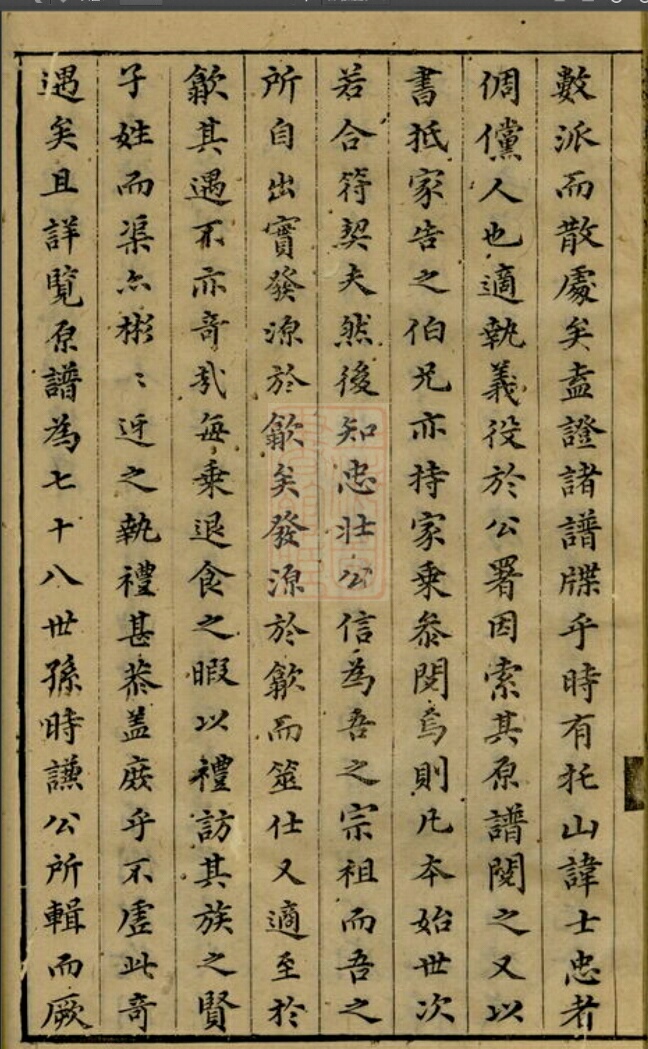 數派而散處矣盍證諸譜牒乎時有托山諱士忠者
倜儻人也適執義役於公署因索其原譜閱之又以
書抵家告之伯兄亦持家乗叅閱焉則凡本始世次
若合符契夫然後知忠壯公信為吾之宗祖而吾之
所自出實發源於歙矣發源於歙而筮仕又適至於
歙其遇不亦竒㢤每乗退食之暇以禮訪其族之賢
子姓而渠亦彬〻近之執禮甚恭盖庻乎不虗此竒
遇矣且詳覧原譜為七十八世孫時讌公所輯而厥